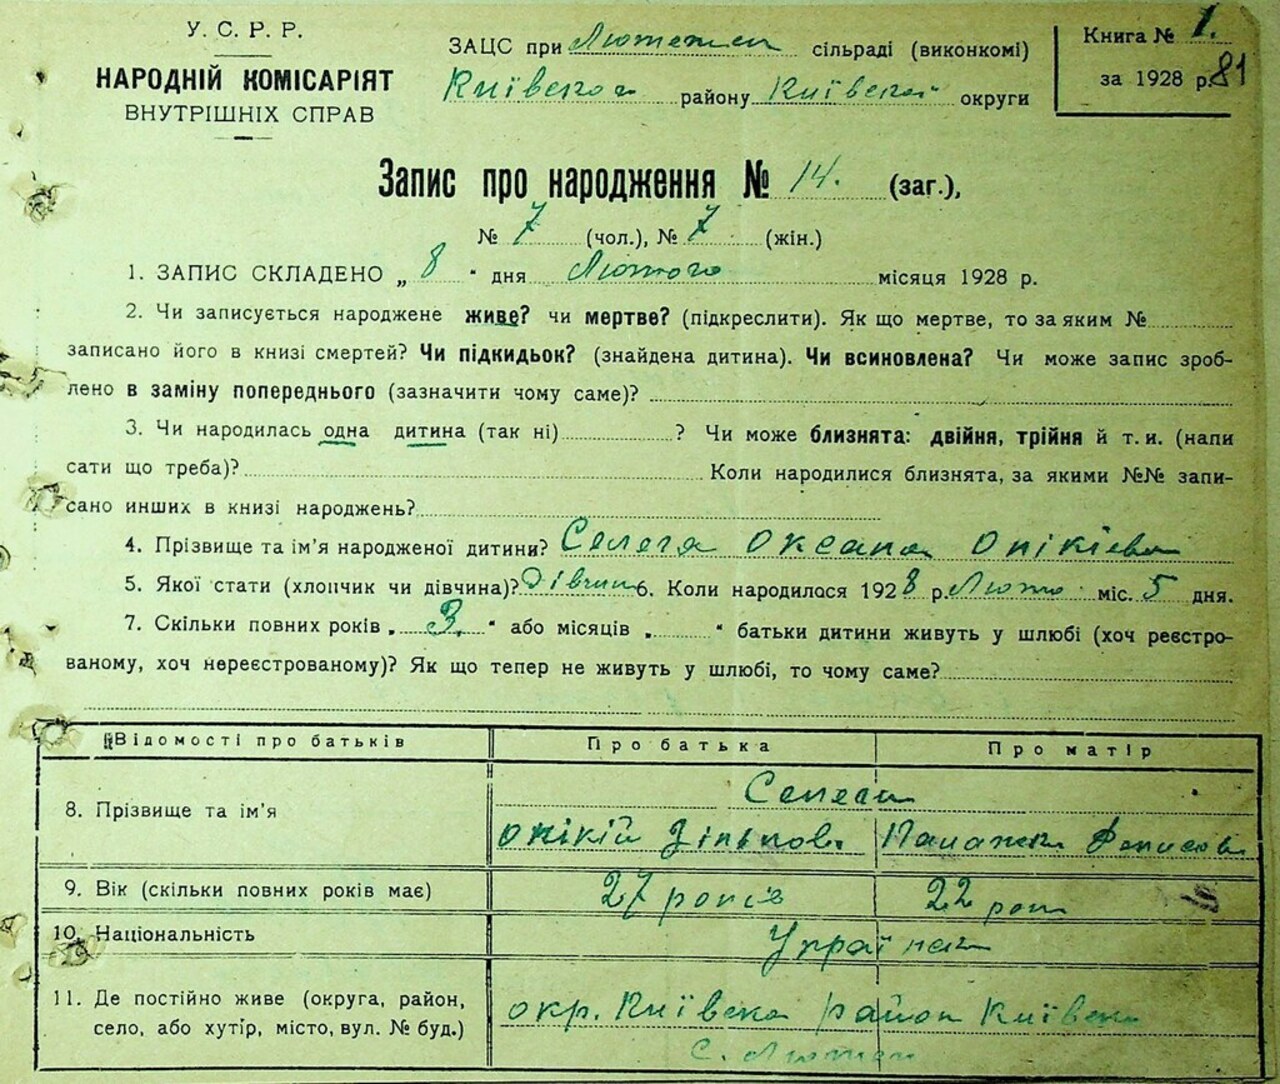 У. С. Р. Р.
НАРОДНІЙ КОМІСАРІЯТ
ВНУТРІШНІХ СПРАВ
ЗАЦС при сільраді (виконкомі)
району округи
Книга № 1.
за 1928 р. 81
Запис про народження № 14. (заг.),
№ 7 (чол.), № 7 (жін.)
1. ЗАПИС СКЛАДЕНО „ 8 " дня Лютого місяця 1928 р.
2. Чи записується народжене живе? чи мертве? (підкреслити). Як що мертве, то за яким №
записано його в книзі смертей? Чи підкидьок? (знайдена дитина). Чи всиновлена? Чи може запис зроб-
лено в заміну попереднього (зазначити чому саме)?
3. Чи народилась одна дитина (так ні) ? Чи може близнята: двійня, трійня й т. и. (напи
сати що треба)? Коли народилися близнята, за якими №№ запи-
сано инших в книзі народжень?
4. Прізвище та ім'я народженої дитини? Оксана
5. Якої стати (хлопчик чи дівчина)? 6. Коли народилося 1928 р. міс. 5 дня.
7. Скільки повних років „ 3. " або місяців „ " батьки дитини живуть у шлюбі (хоч реєстро-
ваному, хоч нереєстрованому)? Як що тепер не живуть у шлюбі, то чому саме?
Відомості про батьків Про батька Про матір
8. Прізвище та ім'я
9. Вік (скільки повних років має) 27 років 22
10. Національність
11. Де постійно живе (округа, район, окр. район
село, або хутір, місто, вул. № буд.) с.